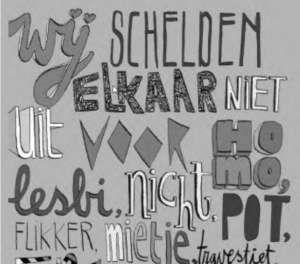 wij SCHELDEN
ELKAAR NIET
UIT VOOR HOMO,
lesbi, nicht, POT,
FLIKKER, mietje, travestiet,